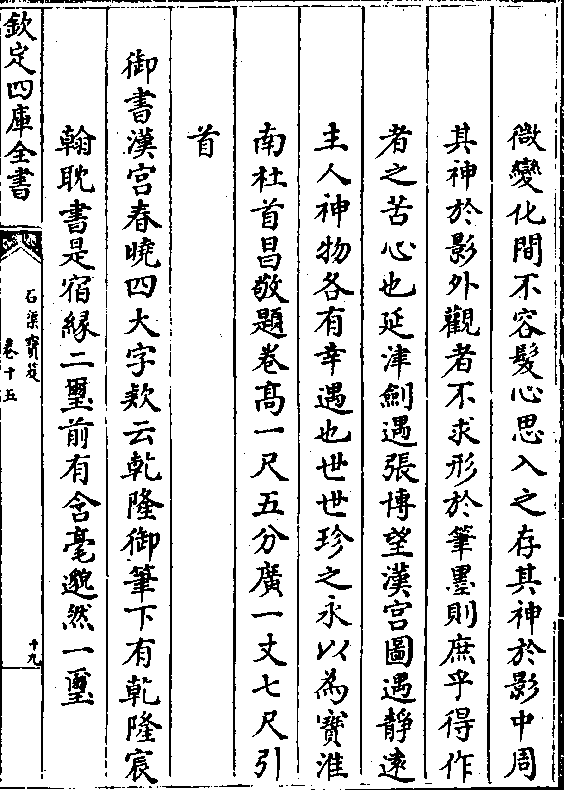 微變化間不容髮心思入之存其神於影中周
其神於影外觀者不求形於筆墨則庶乎得作
者之苦心也延津劍遇張博望漢宮圖遇靜逺
主人神物各有幸遇也世世珍之永以為寶淮
南杜首昌敬題卷髙一尺五分廣一丈七尺引
首
御書漢宮春曉四大字款云乾隆御筆下有乾隆宸
翰耽書是宿緣二璽前有含毫邈然一璽
欽定四庫全書
石渠寶笈
卷十五
十九